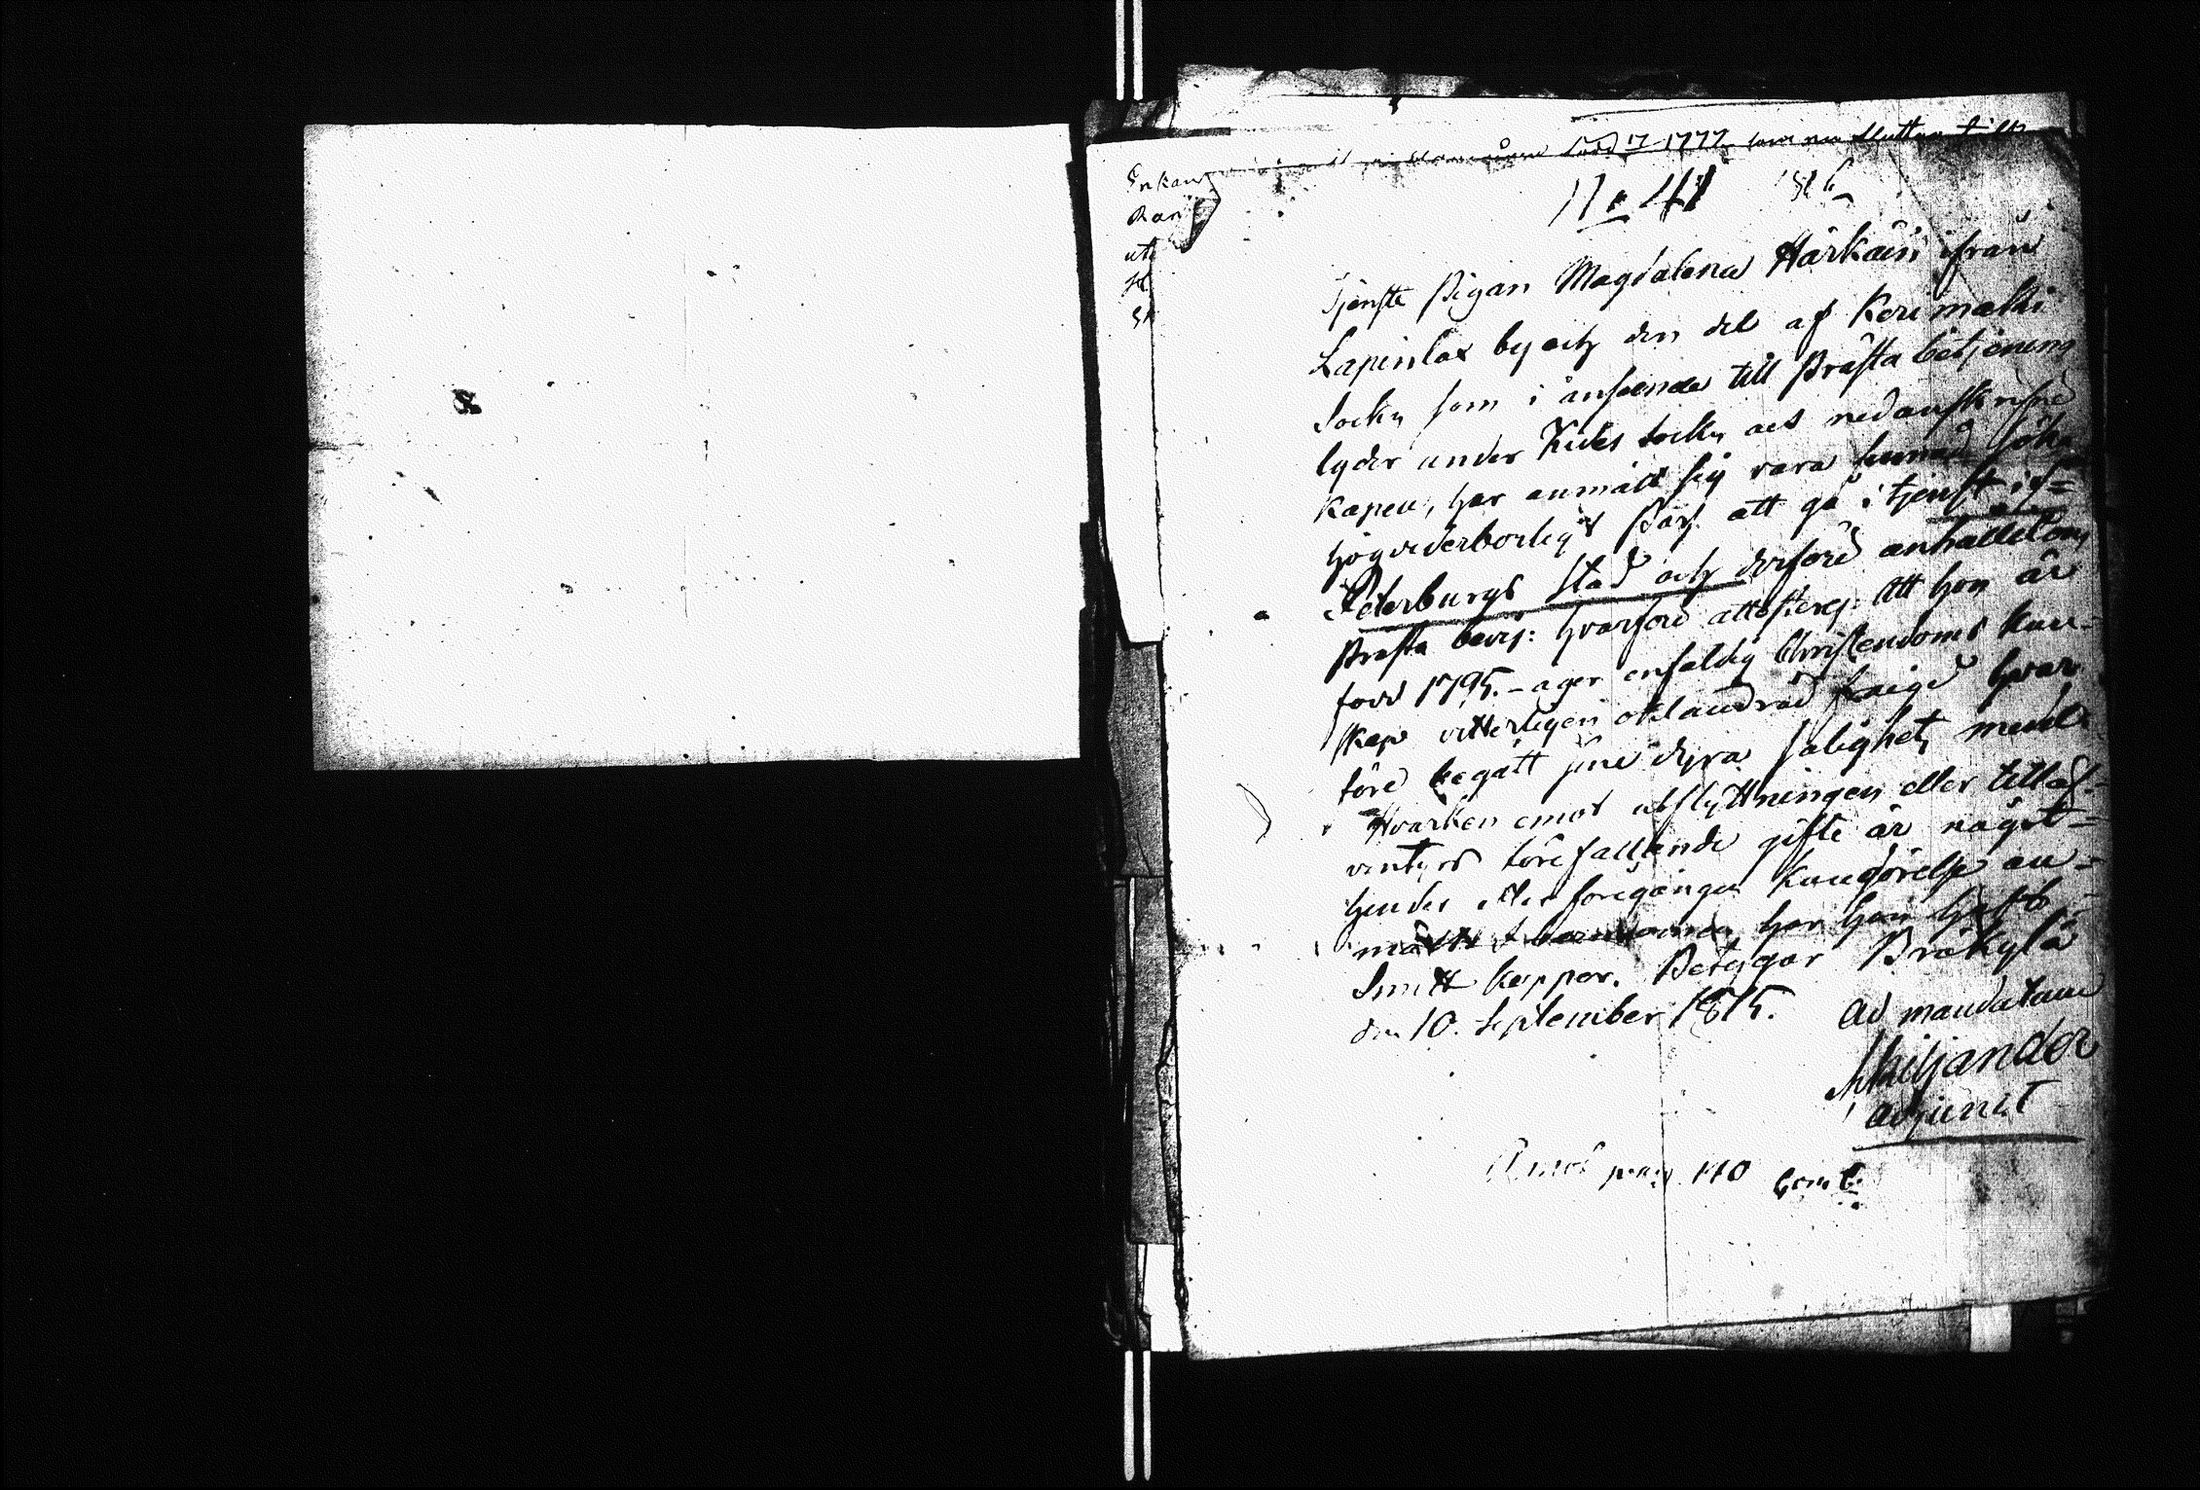 född 1777 som nu flyttar till
Enkan
No 41 1816
Tjenste Pigan Magdalena Härkäin ifrån
Lapinlax by och den del af Kerimäki
Sockn som i anseende till Prästa betjening
lyder under Kides Sockn och nedanskrifne
Kapell, har anmält sig vara sinnad söka
högvederbörligt Pass att gå i tjenst i S:t
Peterburgs stad och derföre anhållit om
Prästa bevis: hvarföre attesteras: Att hon är
född 1795. äger enfaldig Christendoms kun-
skap vitterligen oklandrad frägd hvar
före begått sine dyra salighets medel
Hvarken emot utflyttningen eller till äf-
ventyrs förefallande gifte är någet
hinder efter föregången kungörelse an-
mält har hon haft
Smitt koppor. Betygar Bräkylä
den 10. September 1815. Ad mandatum
Skiljander
adjunct
pag 140